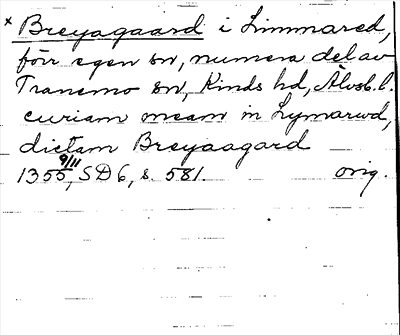 × Breyagaard i Limmared,
förr egen sn, numera del av
Tranemo sn, Kinds hd, Älvsb. l.
curiam meam in Lymarwd,
dictam Breyaagard
1355 9/11, SD 6, s. 581. orig.